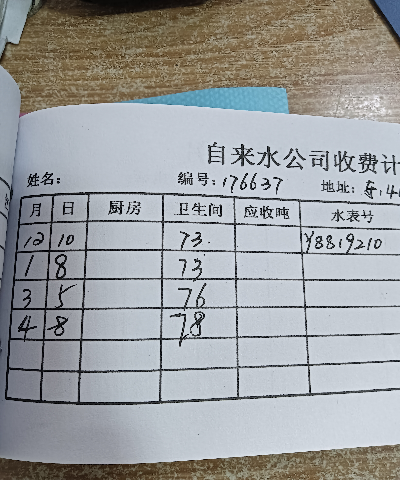 自来水公司收费计
姓名: 编号: 176637 地址:
月 日 厨房 卫生间 应收吨 水表号
12 10 73. Y8819210
1 8 73
3 5 76
4 8 78